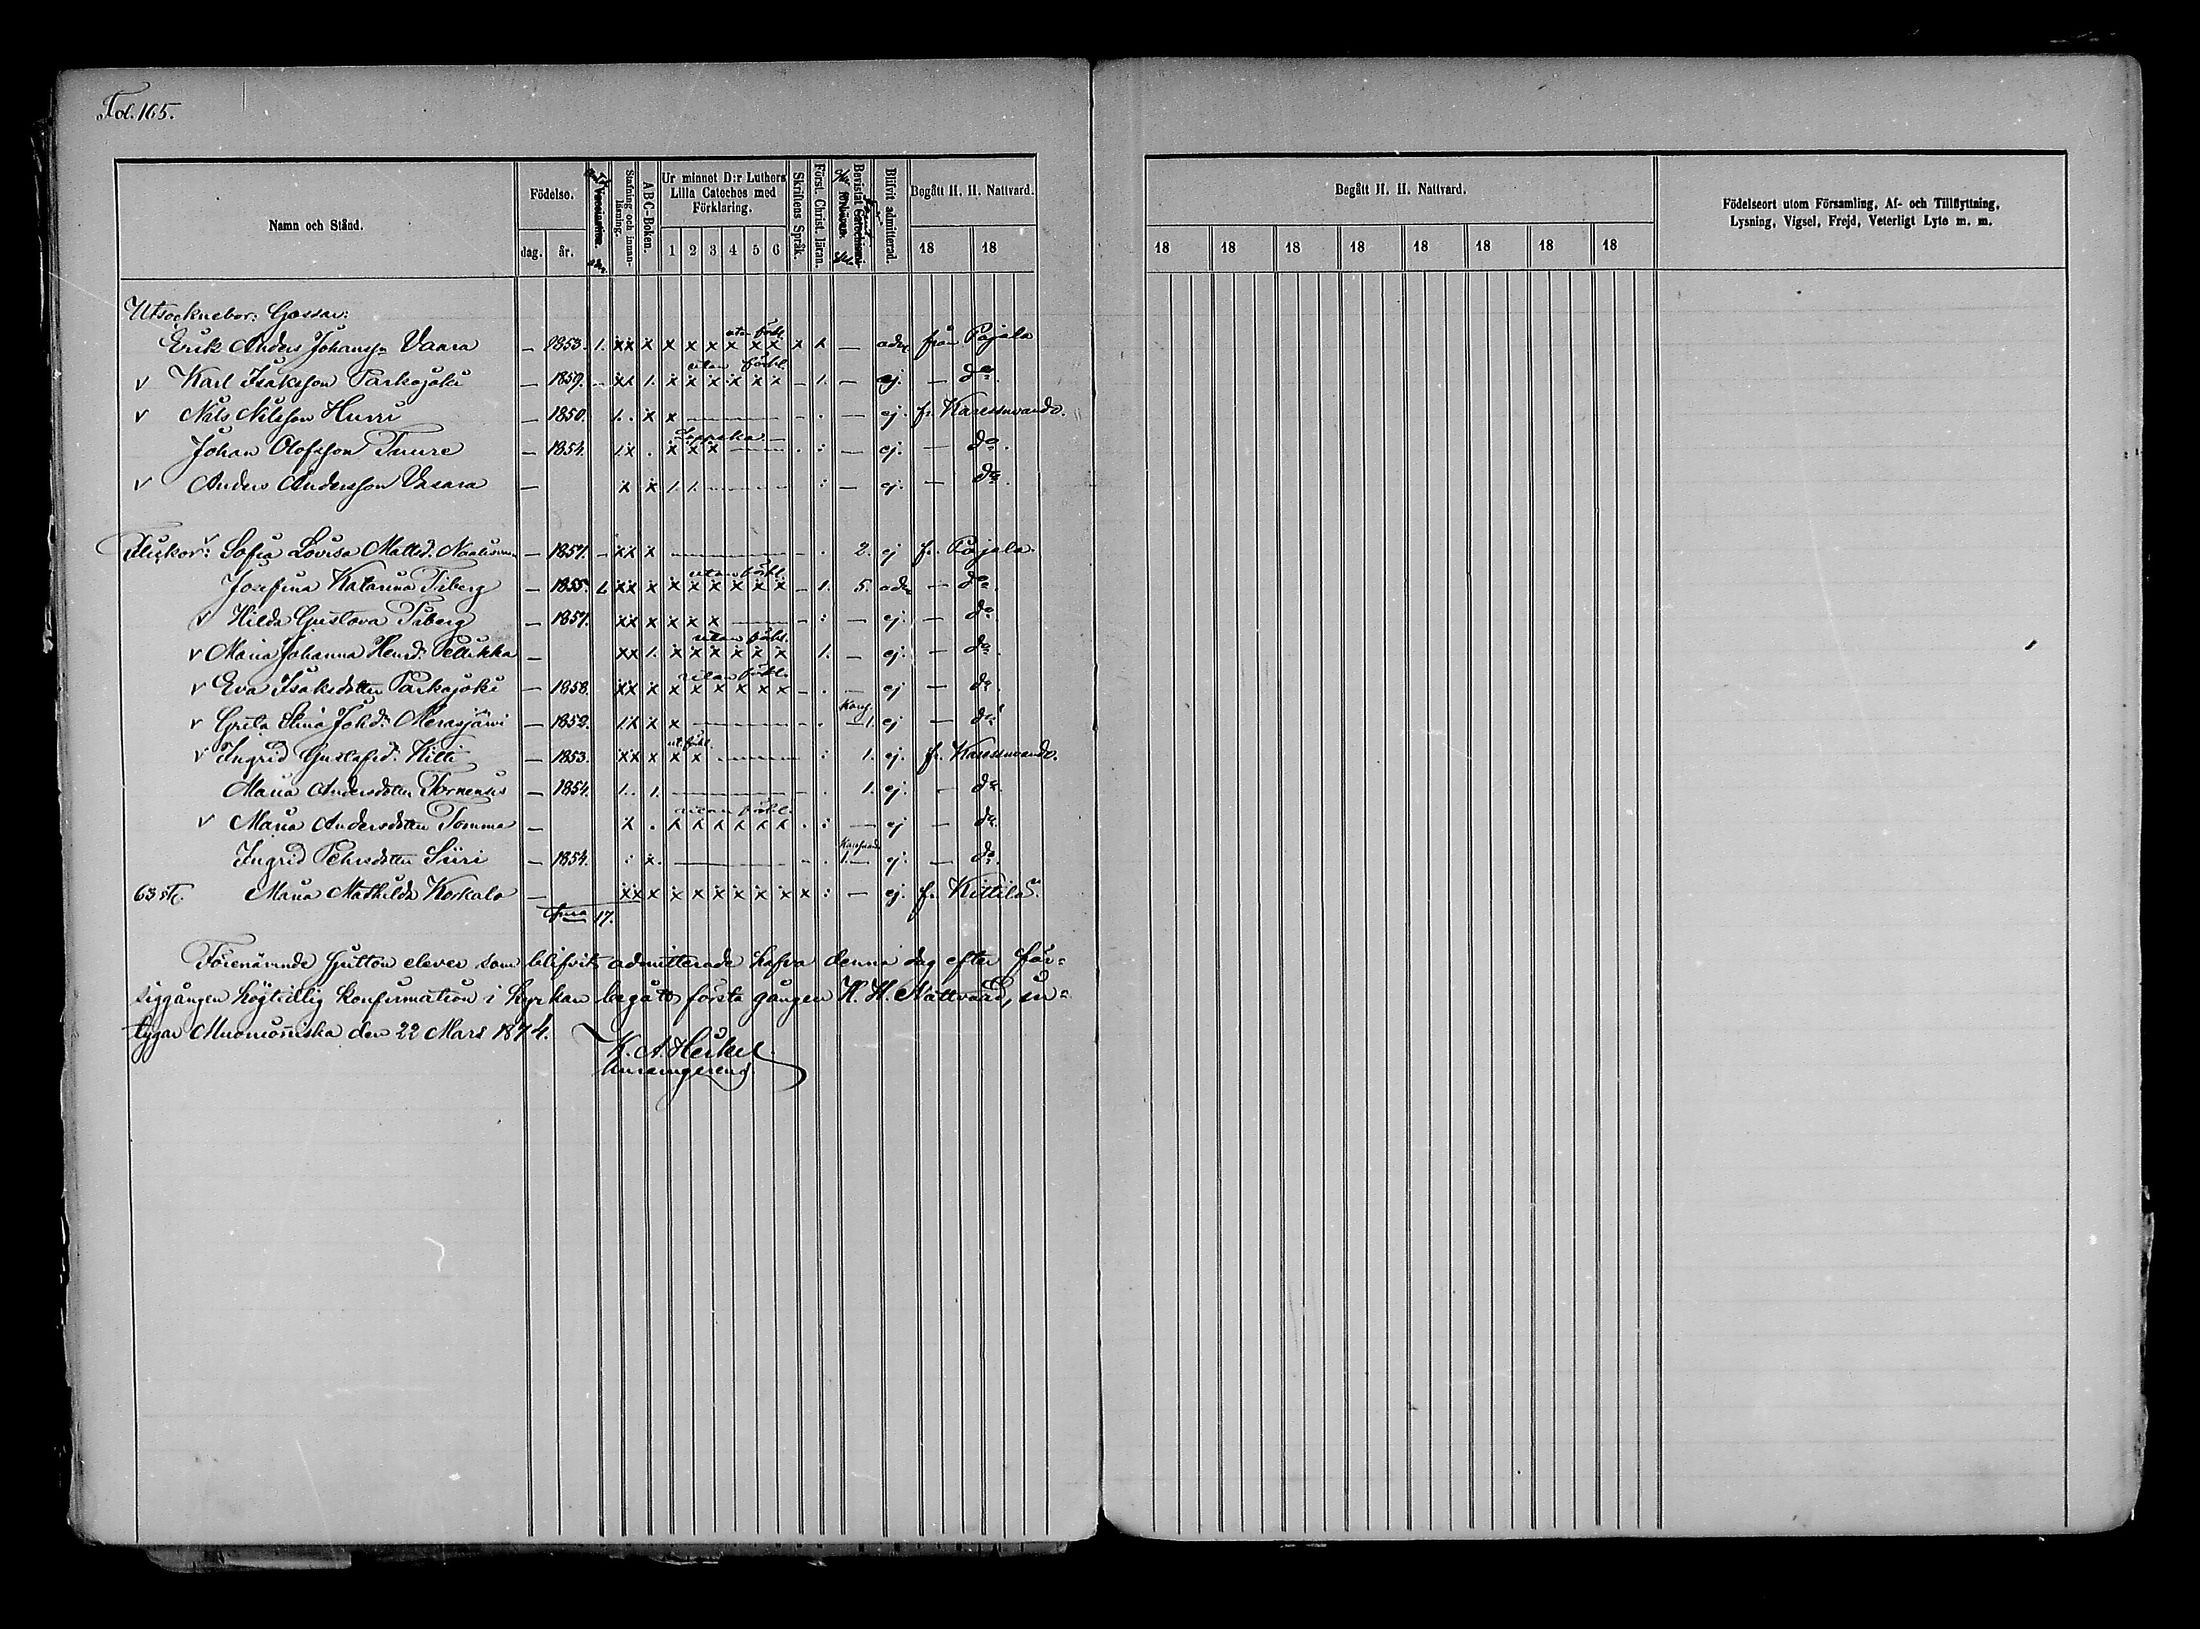 Fol. 165.
Namn och Stånd.
Födelse.
dag. år.
Vaccination.
Stafning och innanläsning.
ABC-Boken.
Ur minnet D:r Luthers Lilla Cateches med Förklaring.
1 2 3 4 5 6
Skriftens Språk.
Först. Christ. läran.
Blifvit admitterad.
Begått H. H. Nattvard.
18 18
Begått H. H. Nattvard.
18 18 18 18 18 18 18 18
Födelseort utom Församling, Af- och Tillflyttning,
Lysning, Vigsel, Frejd, Veterligt Lyte m. m.
Utsocknebor: Gossar:
utan förkl.
Erik Anders Johanss:n Vaara — 1853. 1. xx x x x x x x x x x — adm från Pajala
utan förkl.
v Karl Isaksson Parkajoki — 1859. – xx 1. x x x x x x – 1. — ej. — d:o
v Nils Nilsson Hurri — 1850. 1. x x — ej. fr. Karesuvando.
Lappska
Johan Olofsson Tuure — 1854. 1x . x x x — ej. — d:o.
v Anders Andersson Vasara — x x 1. 1. : — ej. — d:o.
Flickor: v Sofia Lovisa Matts d. — 1857. – xx x — – . 2. ej fr. Pajala.
utan förkl.
Josefina Katarina Fiberg — 1855. 1. xx x x x x x x x – 1. 5. adm — d:o.
v Hilda Gustava Fiberg — 1857. xx x x x x — – : — ej. — d:o
utan förkl.
v Maria Johanna Henrd: Pellikka — xx 1. x x x x x x 1. — ej. — d:o.
utan förkl.
v Eva Isaksdotter Parkajoki — 1858. xx x x x x x x x – . — ej — d:o.
v Greta Stina Joh.d:r Merasjärvi — 1852. 1x x x — – . — 1. ej — d:o
ut. förkl.
v Ingrid Gustafsd: Kitti — 1853. xx x x x — : 1. ej. fr. Karesuvando.
Maria Andersdotter Tornensis — 1854. 1. . 1. — . 1. ej. — d:o.
utan förkl.
v Maria Andersdotter Tomma — x . x x x x x x . : — ej — d:o.
Ingrid Pehrsdotter Siiri — 1854. : x. — – . 1. — ej. — d:o.
63 st. Maria Mathilda Korkalo — xx x x x x x x x x : — ej. fr. Kittilä.
17.
Förenämnde Gutton elever som blifvit admitterade hafva denna dag efter för-
siggången högtidlig konfirmation i kyrkan begått första gången H. H. Nattvard, in-
tygar Muonioniska den 22 Mars 1874.
K. A. Heikel.